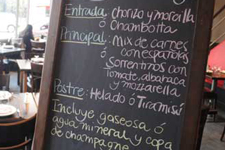 Entrada: Chorizo y morcilla
ó Chambotta
Principal: Mix de carnes
con papas fritas
ó Sorrentinos con
tomate, albahaca
y mozzarella
Postre: Helado ó Tiramisú
Incluye gaseosa ó
agua mineral y copa
de champagne